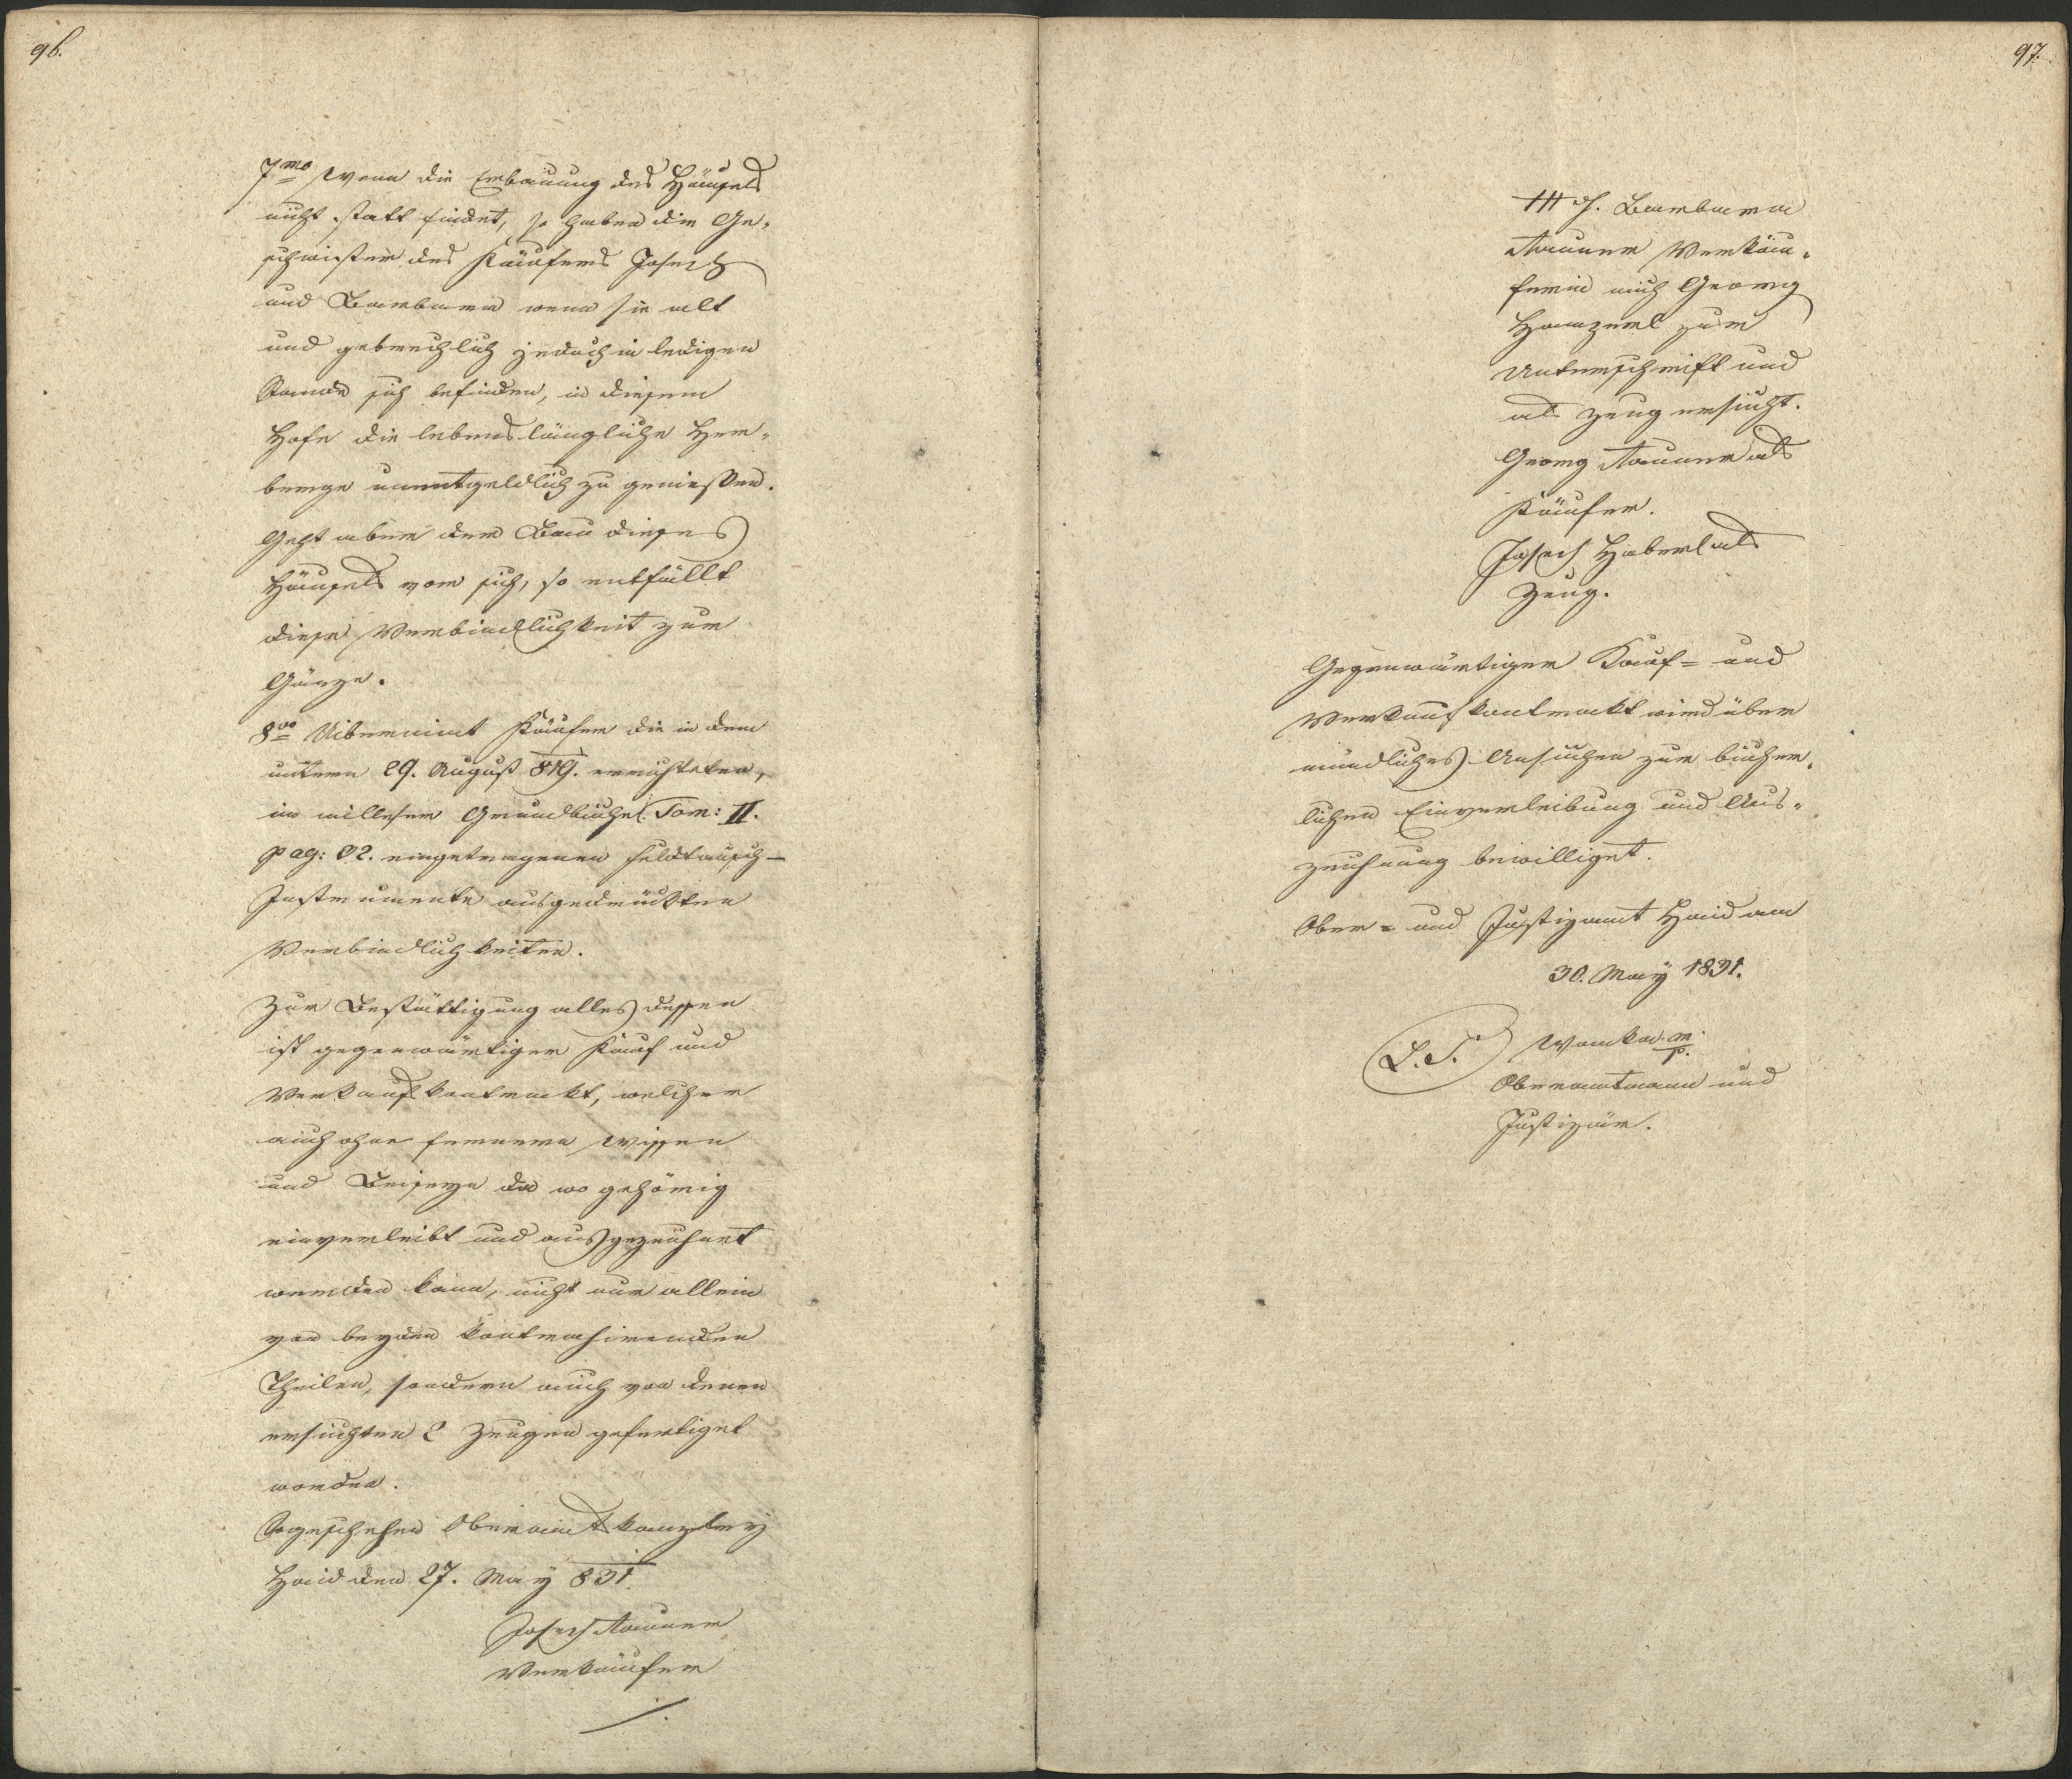 96.
7mo Wenn die Erbauung des Häusels
nicht statt findet, so haben die Ge-
schwister des Käufers Josef
und Barbara wenn sie alt
und gebrechlich jedoch in ledigen
Stande sich befinden, in diesem
Hofe die lebenslängliche Her-
berge unentgeldlich zu genießen.
Geht aber der Bau dieses
Häusels vor sich, so entfällt
diese Verbindlichkeit zur
Gänze.
8vo Uibernimt Käufer die in dem
unterm 29. August 819. errichteten,
im Grundbuche Tom: II.
pag: 92. eingetragenen Feldtausch-
Instrumente ausgedrückten
Verbindlichkeiten.
Zur Bestättigung alles dessen
ist gegenwärtiger Kauf und
Verkaufkontrackt, welcher
auch ohne ferneren Wissen
und Beiseyn da wo gehörig
einverleibt und ausgezeichnet
werden kann, nicht nur allein
von beyden kontrahirenden
Theilen, sondern auch von denen
ersuchten 2 Zeugen gefertiget
worden.
So geschehen Oberamtskanzley
Haid den 27. May 831.
Josef
Verkäufer
./.
97.
+++ Barbara
Verkäu-
ferin mich Georg
zur
Unterschrift und
als Zeug ersucht.
Georg als
Käufer.
Josef Haberl als
Zeug.
Gegenwärtiger Kauf- und
Verkaufskontrackt wird über
mündliches Ansuchen zur bücher-
lichen Einverleibung und Aus-
zeichnung bewilliget.
Ober- und Justizamt Haid am
30. May 1831.
L.S. Wanka m/p.
Oberamtmann und
Justiziär.